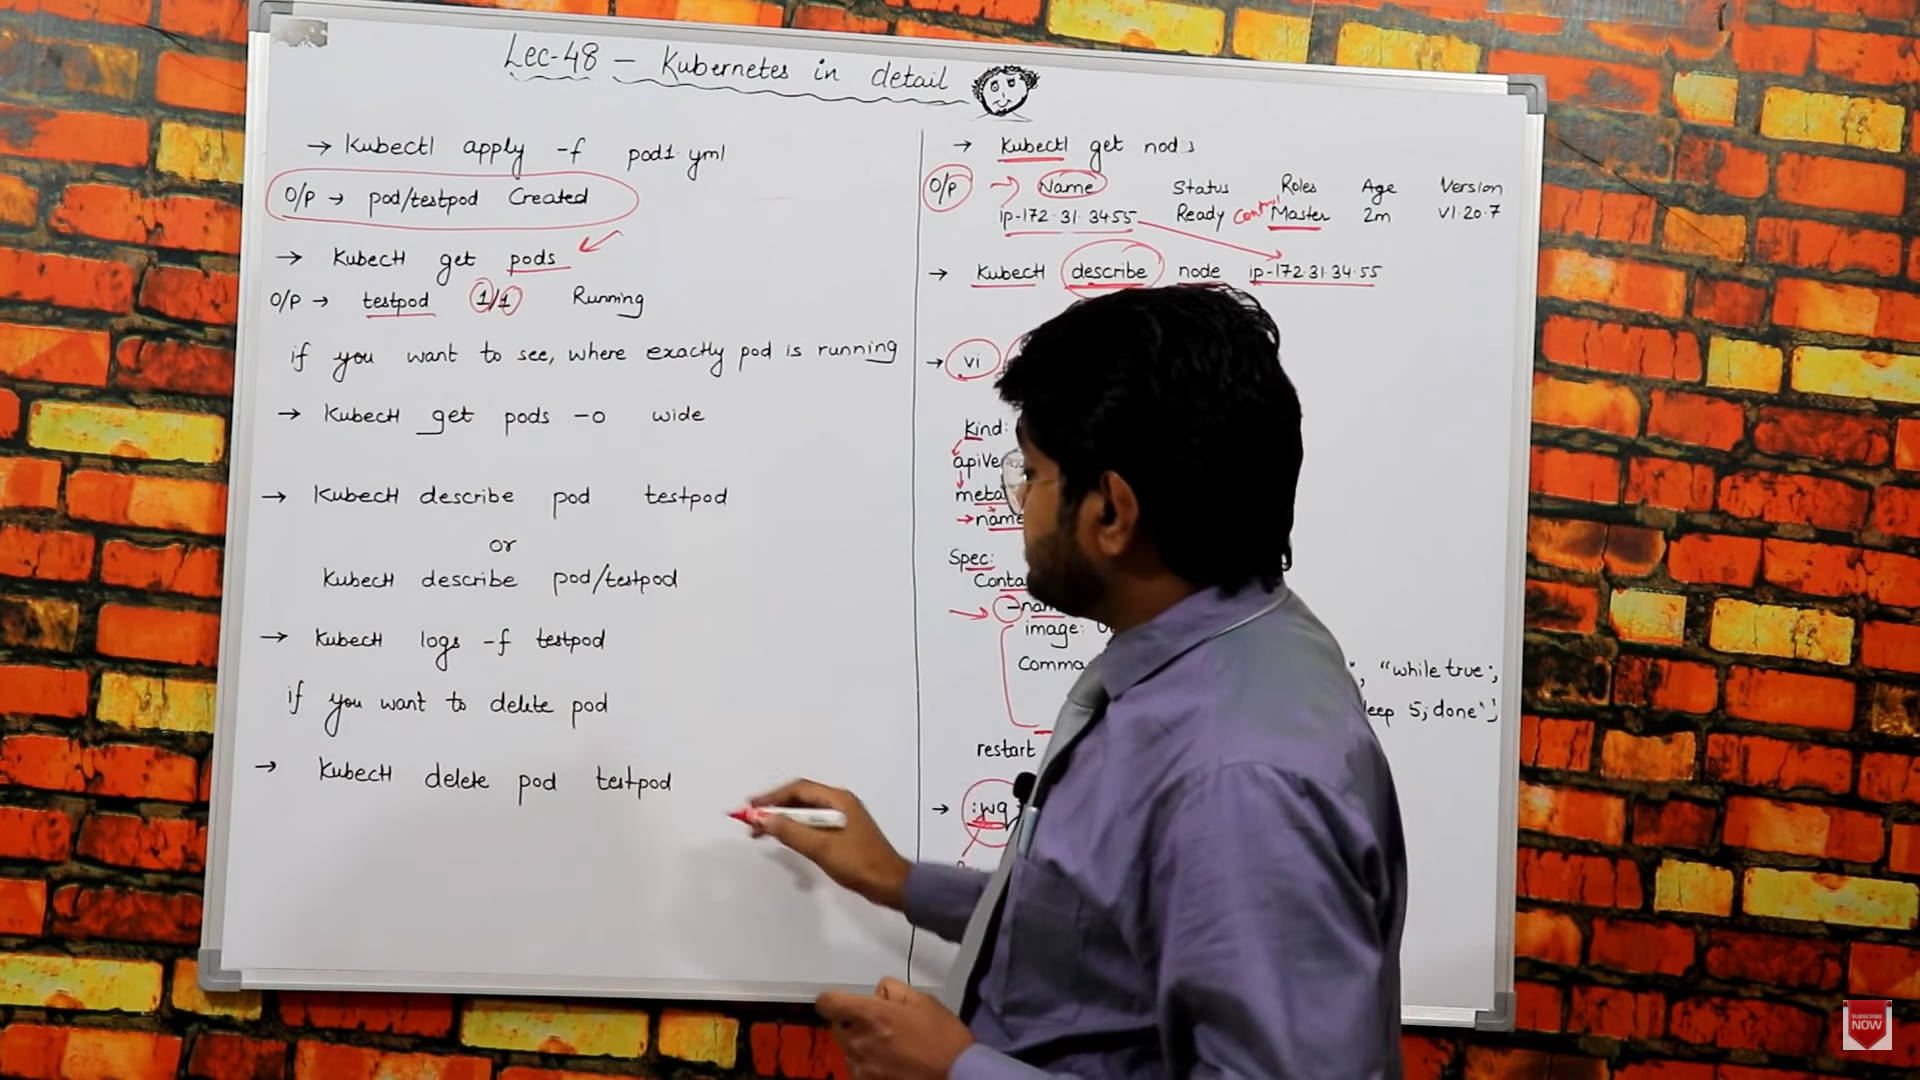 Lec-48 – Kubernetes in detail
→ Kubectl apply -f pod1.yml
O/P → pod/testpod Created
→ Kubectl get pods
O/P → testpod 1/1 Running
if you want to see, where exactly pod is running
→ Kubectl get pods -o wide
→ Kubectl describe pod testpod
or
Kubectl describe pod/testpod
→ Kubectl logs -f testpod
if you want to delete pod
→ Kubectl delete pod testpod
→ Kubectl get nods
O/P → Name Status Roles Age Version
ip-172.31.3455 Ready Control Master 2m V1.20.7
→ Kubectl describe node ip-172.31.34.55
→ vi
Kind:
apiVe
meta
→ name
Spec:
Conta
→ -nam
image: U
Comma ", "while true;
leep 5; done"
restart
→ :wq
SUBSCRIBE
NOW